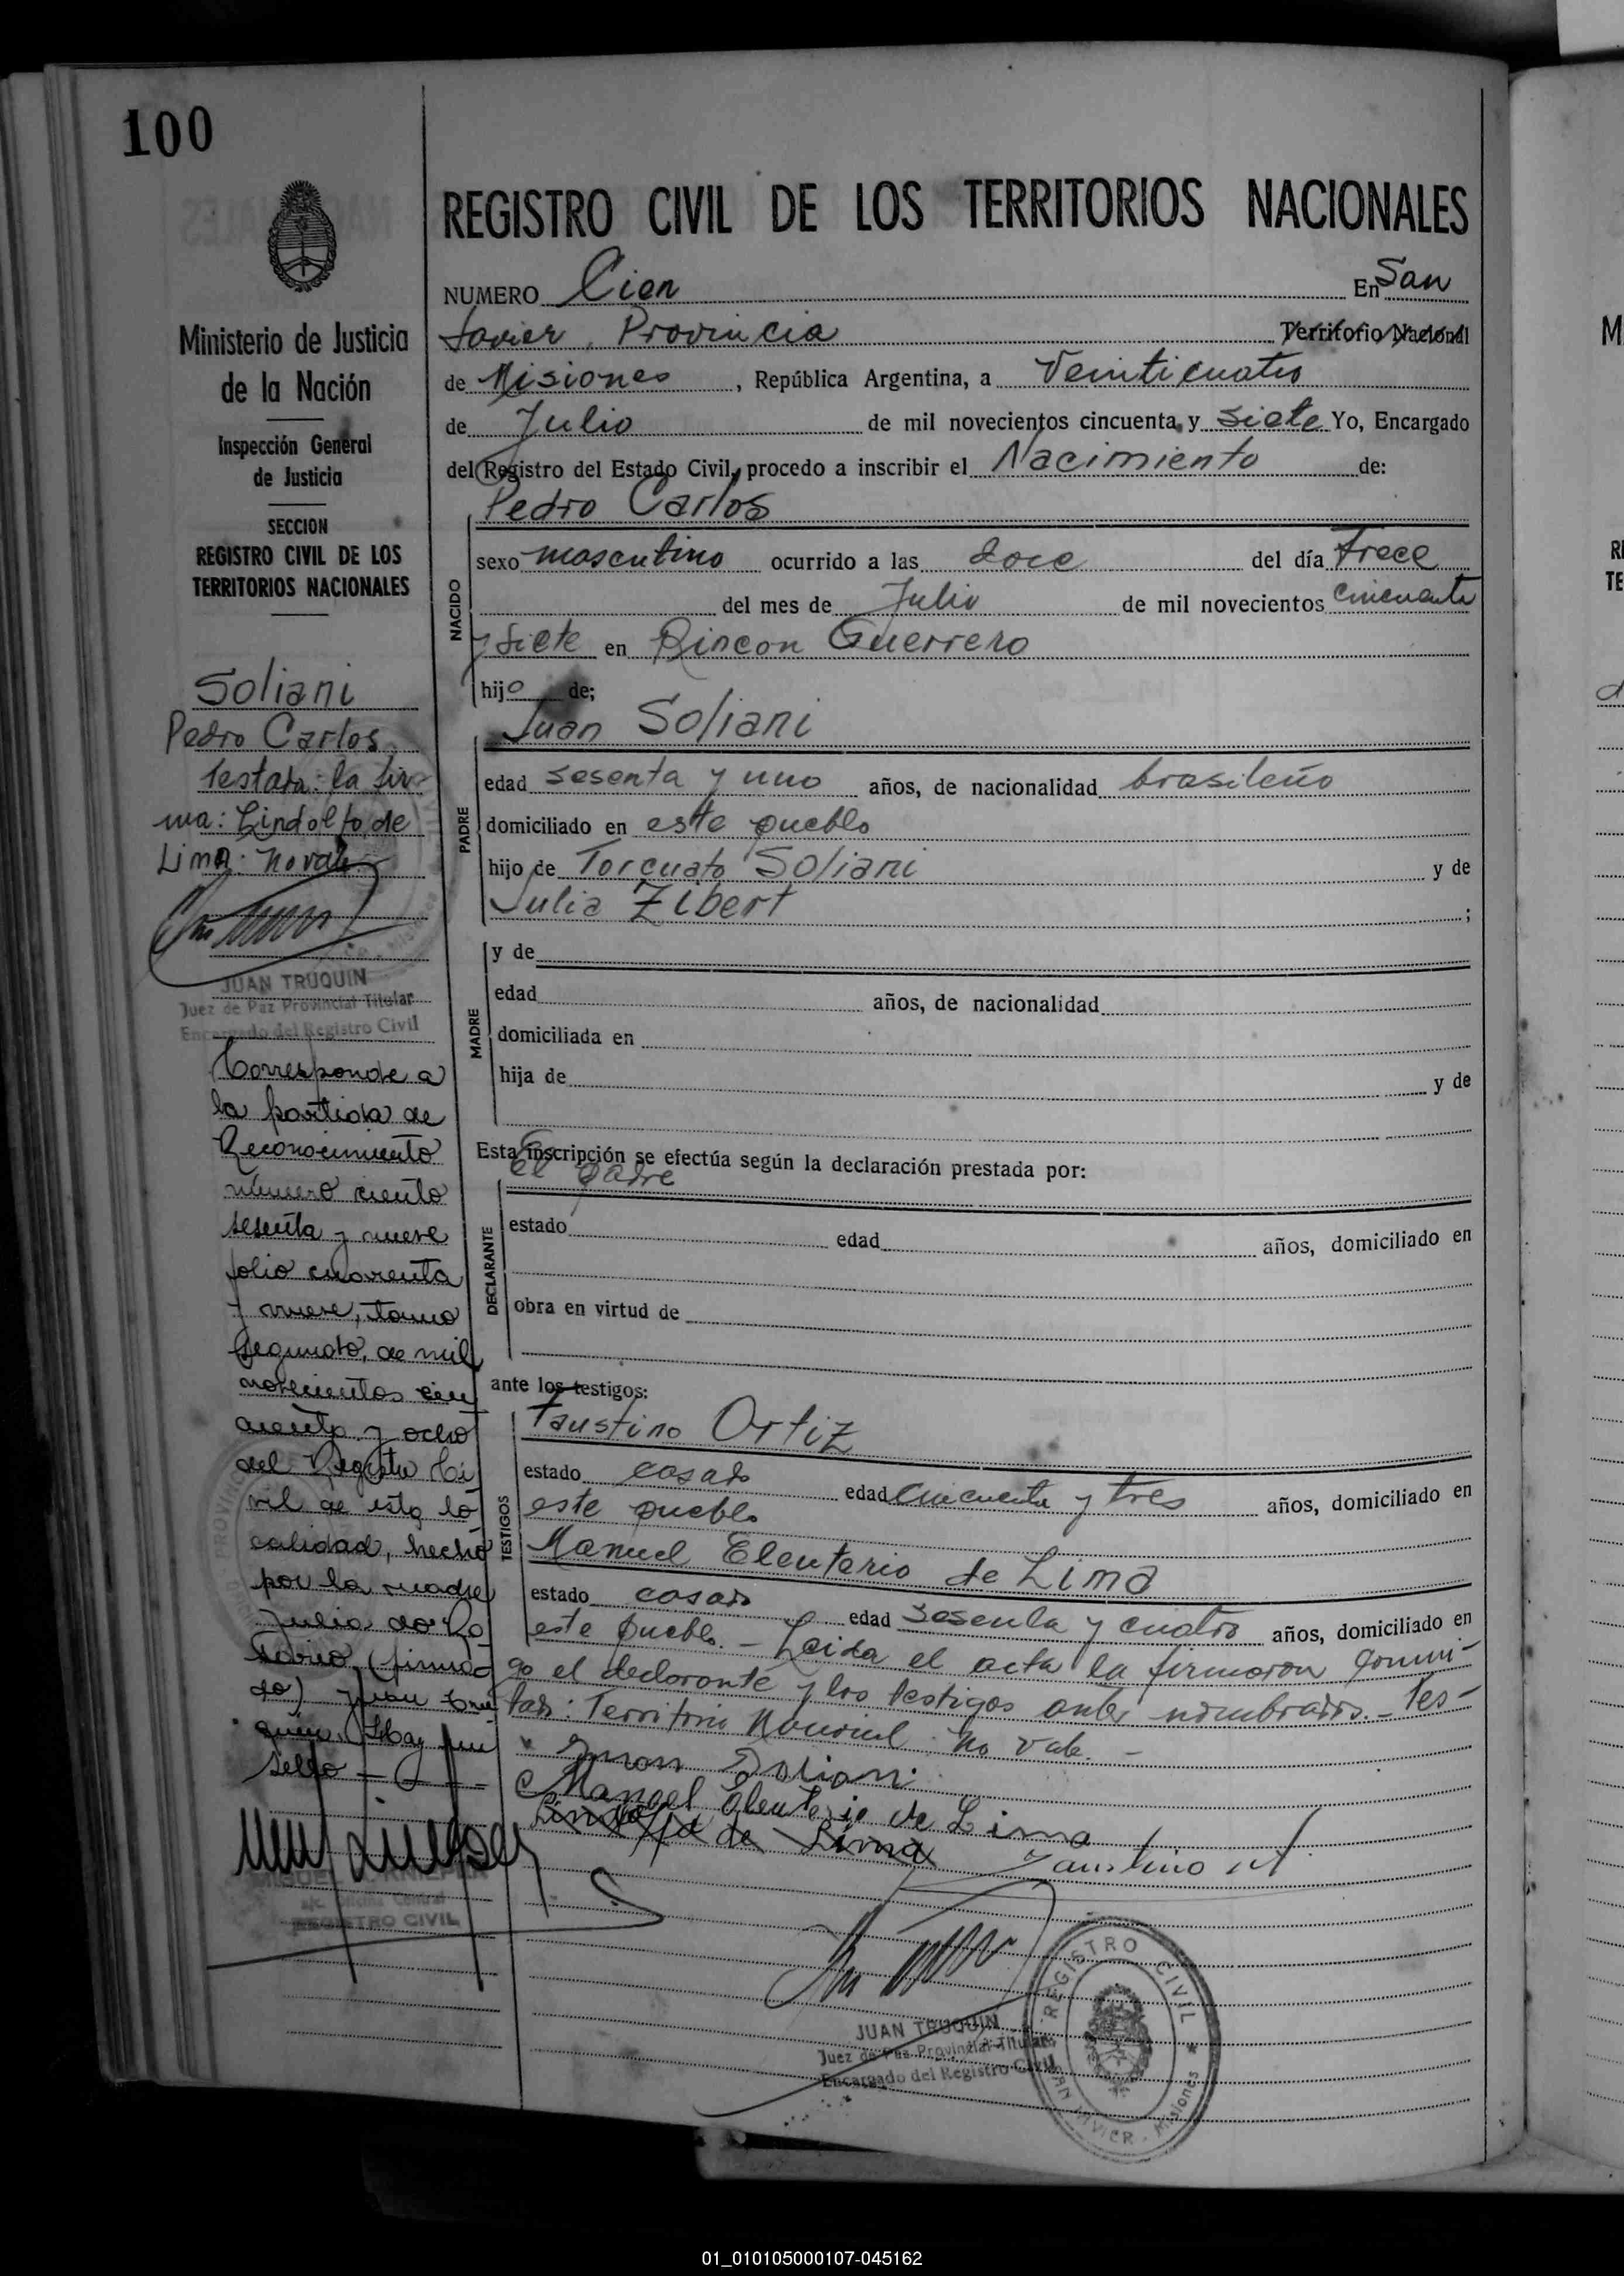 100
REGISTRO CIVIL DE LOS TERRITORIOS NACIONALES
NUMERO Cien En San
Javier, Provincia Territorio Nacional
de Misiones, República Argentina, a Veinticuatro
de Julio de mil novecientos cincuenta y siete Yo, Encargado
del Registro del Estado Civil, procedo a inscribir el Nacimiento de:
Pedro Carlos
NACIDO
sexo masculino ocurrido a las doce del día trece
del mes de Julio de mil novecientos cincuenta
y siete en Rincon Guerrero
hijo de;
Juan Soliani
PADRE
edad sesenta y uno años, de nacionalidad brasileño
domiciliado en este pueblo
hijo de Torcuato Soliani y de
Julia Zibert ;
MADRE
y de
edad años, de nacionalidad
domiciliada en
hija de y de
Esta inscripción se efectúa según la declaración prestada por:
El padre
DECLARANTE
estado edad años, domiciliado en
obra en virtud de
ante los testigos:
TESTIGOS
Faustino Ortiz
estado casado edad cincuenta y tres años, domiciliado en
este pueblo
Manuel Eleuterio de Lima
estado casado edad sesenta y cuatro años, domiciliado en
este pueblo. - Leida el acta la firmaron conmi-
go el declarante y los testigos antes nombrados. - Tes-
tado: Territorio Nacional: No vale. -
Juan Soliani
Manoel Eleuterio de Lima
Lindolfo de Lima
Faustino
JUAN TRUQUIN
Juez de Paz Provincial Titular
Encargado del Registro Civil
REGISTRO CIVIL
SAN JAVIER - Misiones
Ministerio de Justicia
de la Nación
Inspección General
de Justicia
SECCION
REGISTRO CIVIL DE LOS
TERRITORIOS NACIONALES
Soliani
Pedro Carlos
Testada: la fir-
ma: Lindolfo de
Lima: no vale
JUAN TRUQUIN
Juez de Paz Provincial Titular
Encargado del Registro Civil
Corresponde a
la partida de
Reconocimiento
número ciento
sesenta y nueve
folio cuarenta
y nueve, tomo
segundo, de mil
novecientos cin
cuenta y ocho
del Registro Ci
vil de esta lo
calidad, hecho
por la madre
Julia do Ro
sario, (firma
do) Juan Tru
quin. (Hay un
sello -
REGISTRO CIVIL
01_010105000107-045162